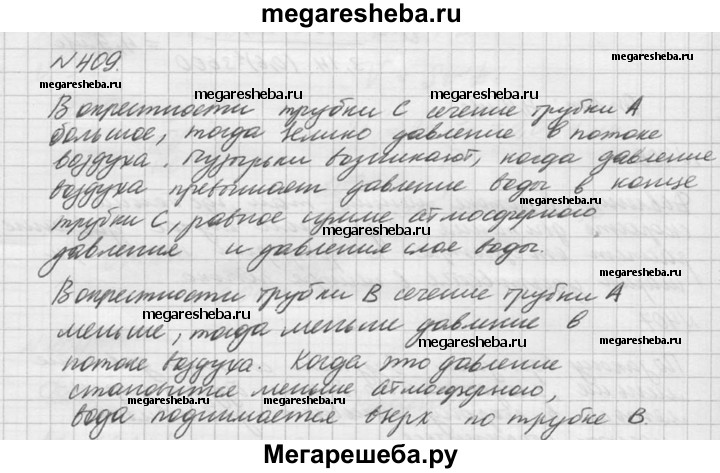 megaresheba.ru
N 409.
megaresheba.ru megaresheba.ru megaresheba.ru
В окрестности трубки С сечение трубки А
большое, тогда велико давление в потоке
воздуха. Пузырьки возникают, когда давление
megaresheba.ru megaresheba.ru
воздуха превышает давление воды в конце
megaresheba.ru
трубки С, равное сумме атмосферного
megaresheba.ru
давления и давления слоя воды.
megaresheba.ru
В окрестности трубки В сечение трубки А
megaresheba.ru
меньше, тогда меньше давление в
megaresheba.ru
потоке воздуха. Когда это давление
megaresheba.ru
становится меньше атмосферного,
megaresheba.ru megaresheba.ru
вода поднимается вверх по трубке В.
Мегарешеба.ру